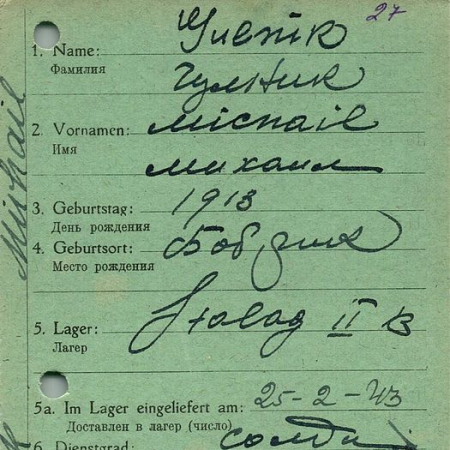 27
1. Name:
Фамилия
Гулник
2. Vornamen: Michail
Имя
Михаил
3. Geburtstag: 1913
День рождения
4. Geburtsort:
Место рождения
5. Lager: Stalag II B
Лагер
5a. Im Lager eingeliefert am: 25-2-43
Доставлен в лагер (число)
6. Dienstgrad:
Michail